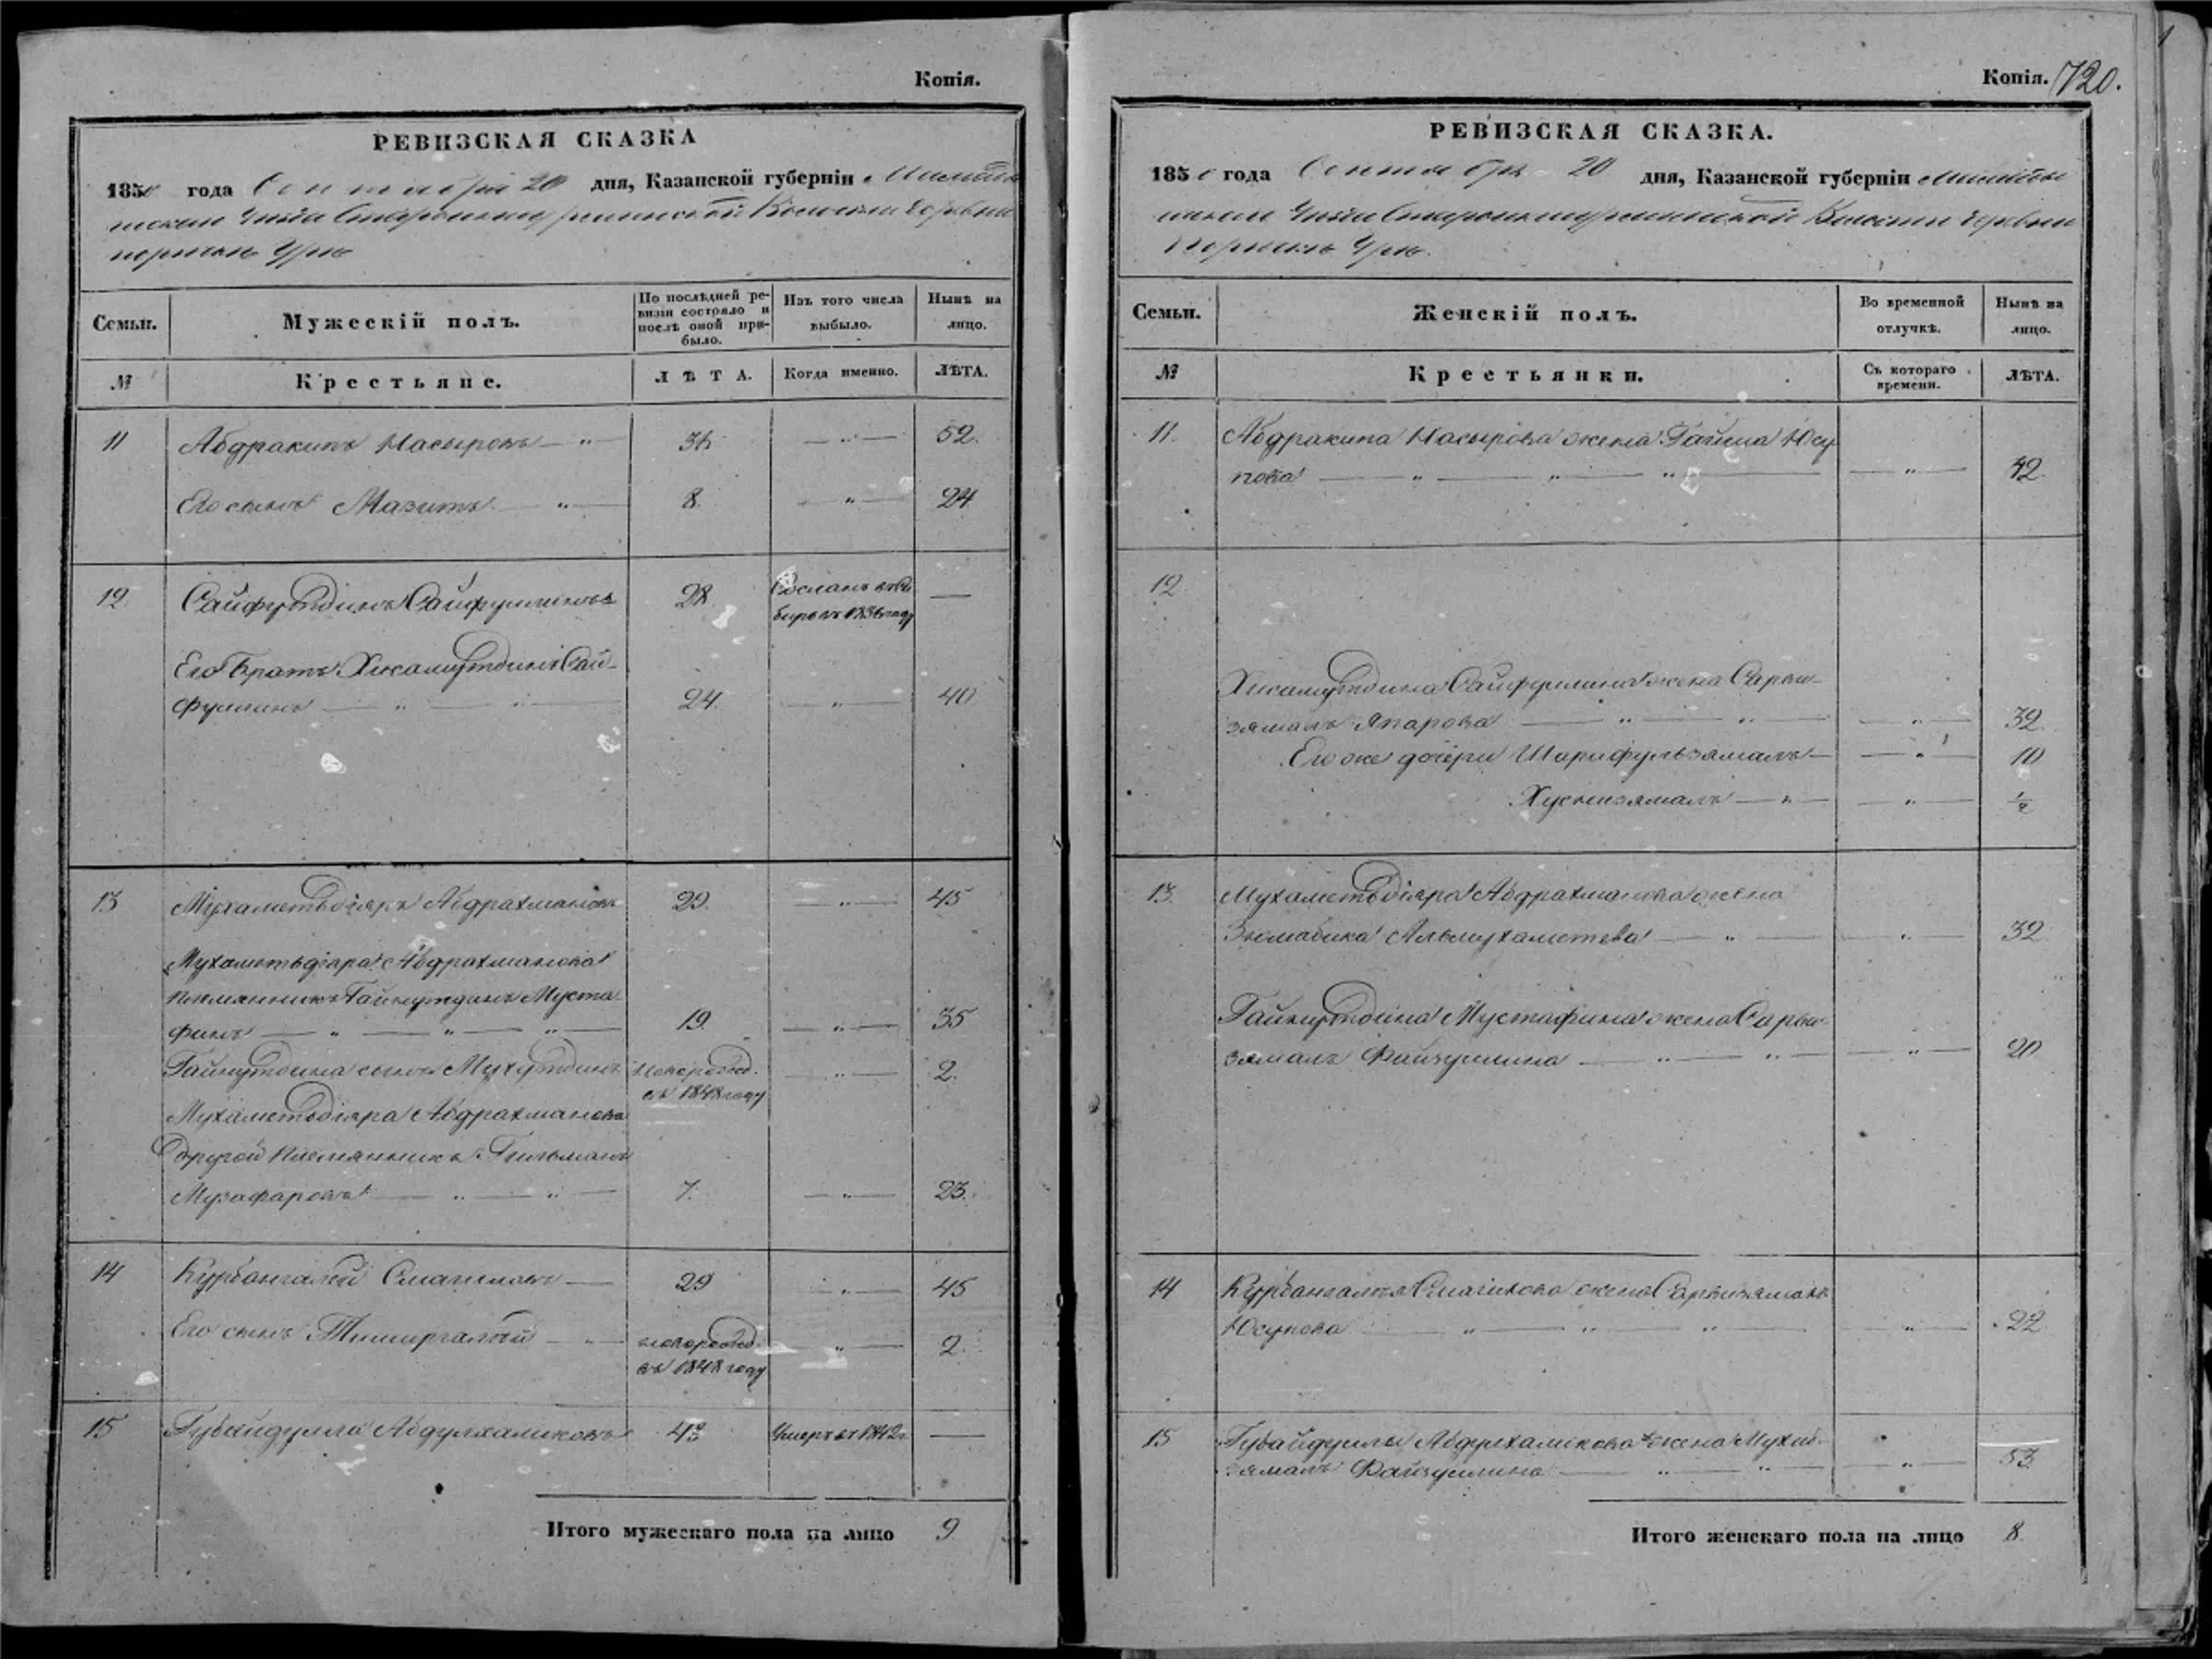 Копія.
РЕВИЗСКАЯ СКАЗКА
1850 года Сентября 20 дня, Казанской губерніи Мамадыш
скаго Уѣзда Старо Волости деревни
Уры
Семьи.
Мужескій полъ.
По послѣдней ре-
визіи состояло и
послѣ оной при-
было.
Изъ того числа
выбыло.
Нынѣ на
лицо.
№
Крестьяне.
ЛѢТА.
Когда именно.
ЛѢТА.
11 Абдракипъ Насыровъ — " — — " — 52.
Его сынъ Мазитъ — " — 8. — " — 24
12. Сайфутдинъ Сайфуллинъ 28 Сосланъ въ Си
бирь въ 1836 году —
Его братъ Хисамутдинъ Сай-
фуллинъ — " — " — 24. — " — 40
13 Мухаметьдіяръ Абдрахмановъ 29. — " — 45
Мухаметьдіяра Абдрахманова
племянникъ Гайнутдинъ Муста
финъ — " — " — " — 19. — " — 35
Гайнутдина сынъ Мухутдинъ Новорожд.
въ 1848 году — " — 2.
Мухаметьдіяра Абдрахманова
другой племянникъ Гильманъ
Музафаровъ — " — " — 7. — " — 23.
14 Курбангалей Смагиловъ — 29 — " — 45
Его сынъ Тимиргалѣй — " — новорожд.
въ 1848 году — " — 2.
15 Губайдулла Абдулхаликовъ 43 Умеръ въ 1842 г. —
Итого мужескаго пола на лицо 9
Копія. 720.
РЕВИЗСКАЯ СКАЗКА.
1850 года Сентября 20 дня, Казанской губерніи Мамады
шскаго Уѣзда Старо Волости деревни
Уры.
Семьи.
Женскій полъ.
Во временной
отлучкѣ.
Нынѣ на
лицо.
№
Крестьянки.
Съ котораго
времени.
ЛѢТА.
11. Абдракипа Насырова жена Гайша Юсу
пова — " — " — " — — " — 42.
12
Хисамутдина Сайфуллина жена Сарби-
зямалъ Япарова — " — " — — " — 32.
Его же дочери Шарифульзамалъ — — " — 10
Хуснизямалъ — " — — " — 1/2
13. Мухаметьдіяра Абдрахманова жена
Зюмабика Альмухаметева — " — — " — 32
Гайнутдина Мустафина жена Сарби-
зямалъ Файзуллина — " — " — — " — 20
14 Курбангалея Смагилова жена Сарбизямалъ
Юсупова — " — " — " — — " — 22
15 Губайдуллы Абдулхаликова жена Мухиб-
зямалъ Файзуллина — " — " — — " — 53
Итого женскаго пола на лицо 8.